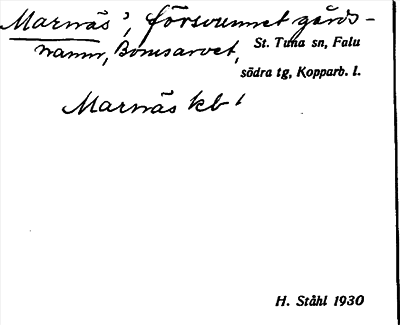 Marnäs³, försvunnet gårds-
namn, Bomsarvet, St. Tuna sn, Falu
södra tg, Kopparb. l.
Marnäs kb¹
H. Ståhl 1930